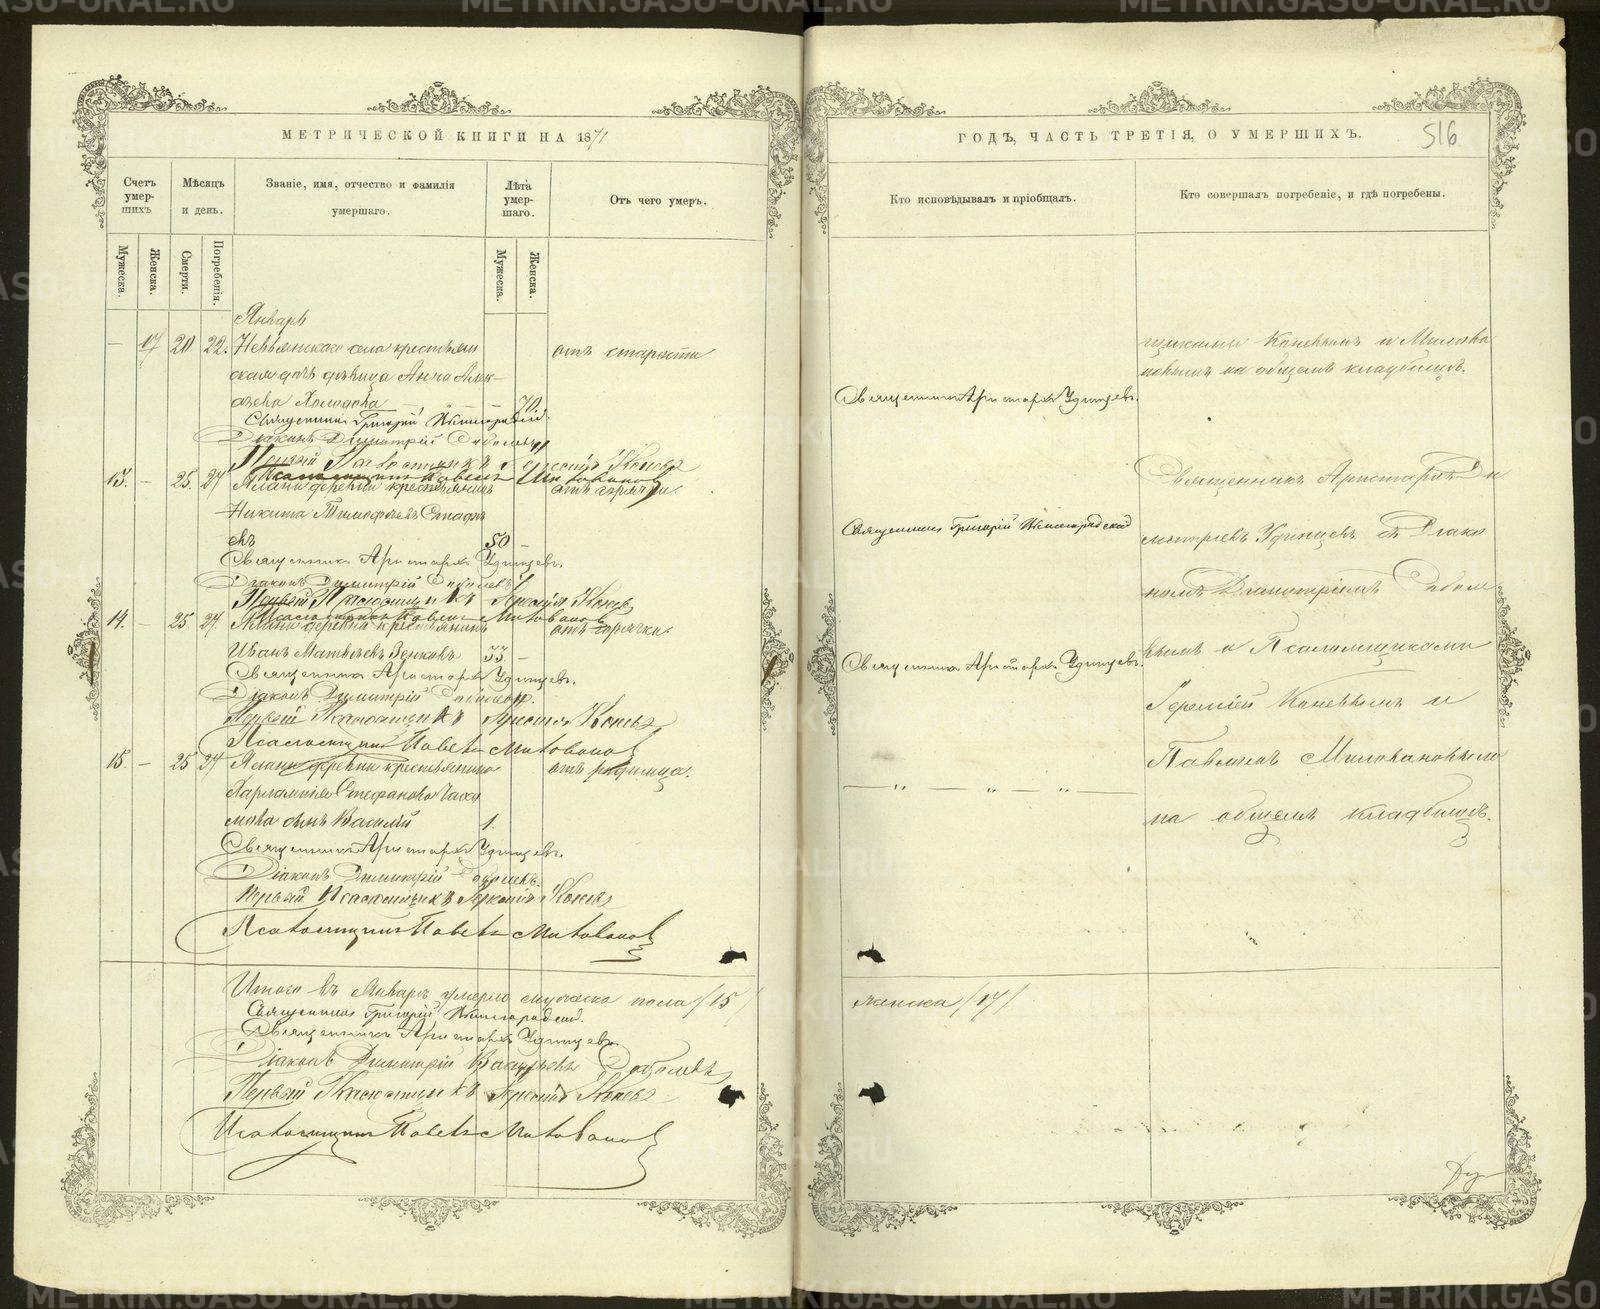 МЕТРИЧЕСКОЙ КНИГИ НА 1871
Счетъ умершихъ
Мѣсяцъ и день.
Званіе, имя, отчество и фамилія умершаго.
Лѣта умершаго.
Отъ чего умеръ.
Мужеска.
Женска.
Смерти.
Погребенія.
Мужеска.
Женска.
Январь
— 17 20 22. Невьянскаго села крестьян
ская дочь дѣвица Анна Алек
сѣева Холодова 70. отъ старости
Священникъ Григорій
Діаконъ Димитрій Соболевъ
Первый Псаломщикъ Іеремій Коневъ
Псаломщикъ Павелъ Миловановъ
13. — 25. 27 деревни крестьянинъ отъ горячки.
Никита Тимофеевъ
евъ 50 —
Священникъ Аристархъ Удинцевъ.
Діаконъ Димитрій Соболевъ
Первый Псаломщикъ Іеремій Коневъ
Псаломщикъ Павелъ Миловановъ
14. — 25. 27. деревни крестьянинъ отъ горячки.
Иванъ Матвѣевъ 33 —
Священникъ Аристархъ Удинцевъ.
Діаконъ Димитрій Соболевъ.
Первый Псаломщикъ Іеремій Коневъ
Псаломщикъ Павелъ Миловановъ
15. — 25 27 деревни крестьянина отъ родимца.
Харлампія Стефанова
мова сынъ Василій 1.
Священникъ Аристархъ Удинцевъ.
Діаконъ Димитрій Соболевъ.
Первый Псаломщикъ Іеремій Коневъ
Псаломщикъ Павелъ Миловановъ
Итого въ Январѣ умерло мужеска пола /15/
Священникъ Григорій
Священникъ Аристархъ Удинцевъ.
Діаконъ Димитрій Васильевъ Соболевъ
Первый Псаломщикъ Іеремій Коневъ
Псаломщикъ Павелъ Миловановъ
ГОДЪ, ЧАСТЬ ТРЕТІЯ, О УМЕРШИХЪ.
516
Кто исповѣдывалъ и пріобщалъ.
Кто совершалъ погребеніе, и гдѣ погребены.
щиками Коневымъ и Милова
новымъ на общемъ кладбищѣ.
Священникъ Аристархъ Удинцевъ.
Священникъ Аристархъ Ди
Священникъ Григорій
митріевъ Удинцевъ съ Діако
номъ Димитріемъ Собол
Священникъ Аристархъ Удинцевъ.
вымъ и Псаломщиками
Іереміей Коневымъ и
Павломъ Миловановымъ
— " — " — " —
на общемъ кладбищѣ.
женска /17/
METRIKI.GASO-URAL.RU